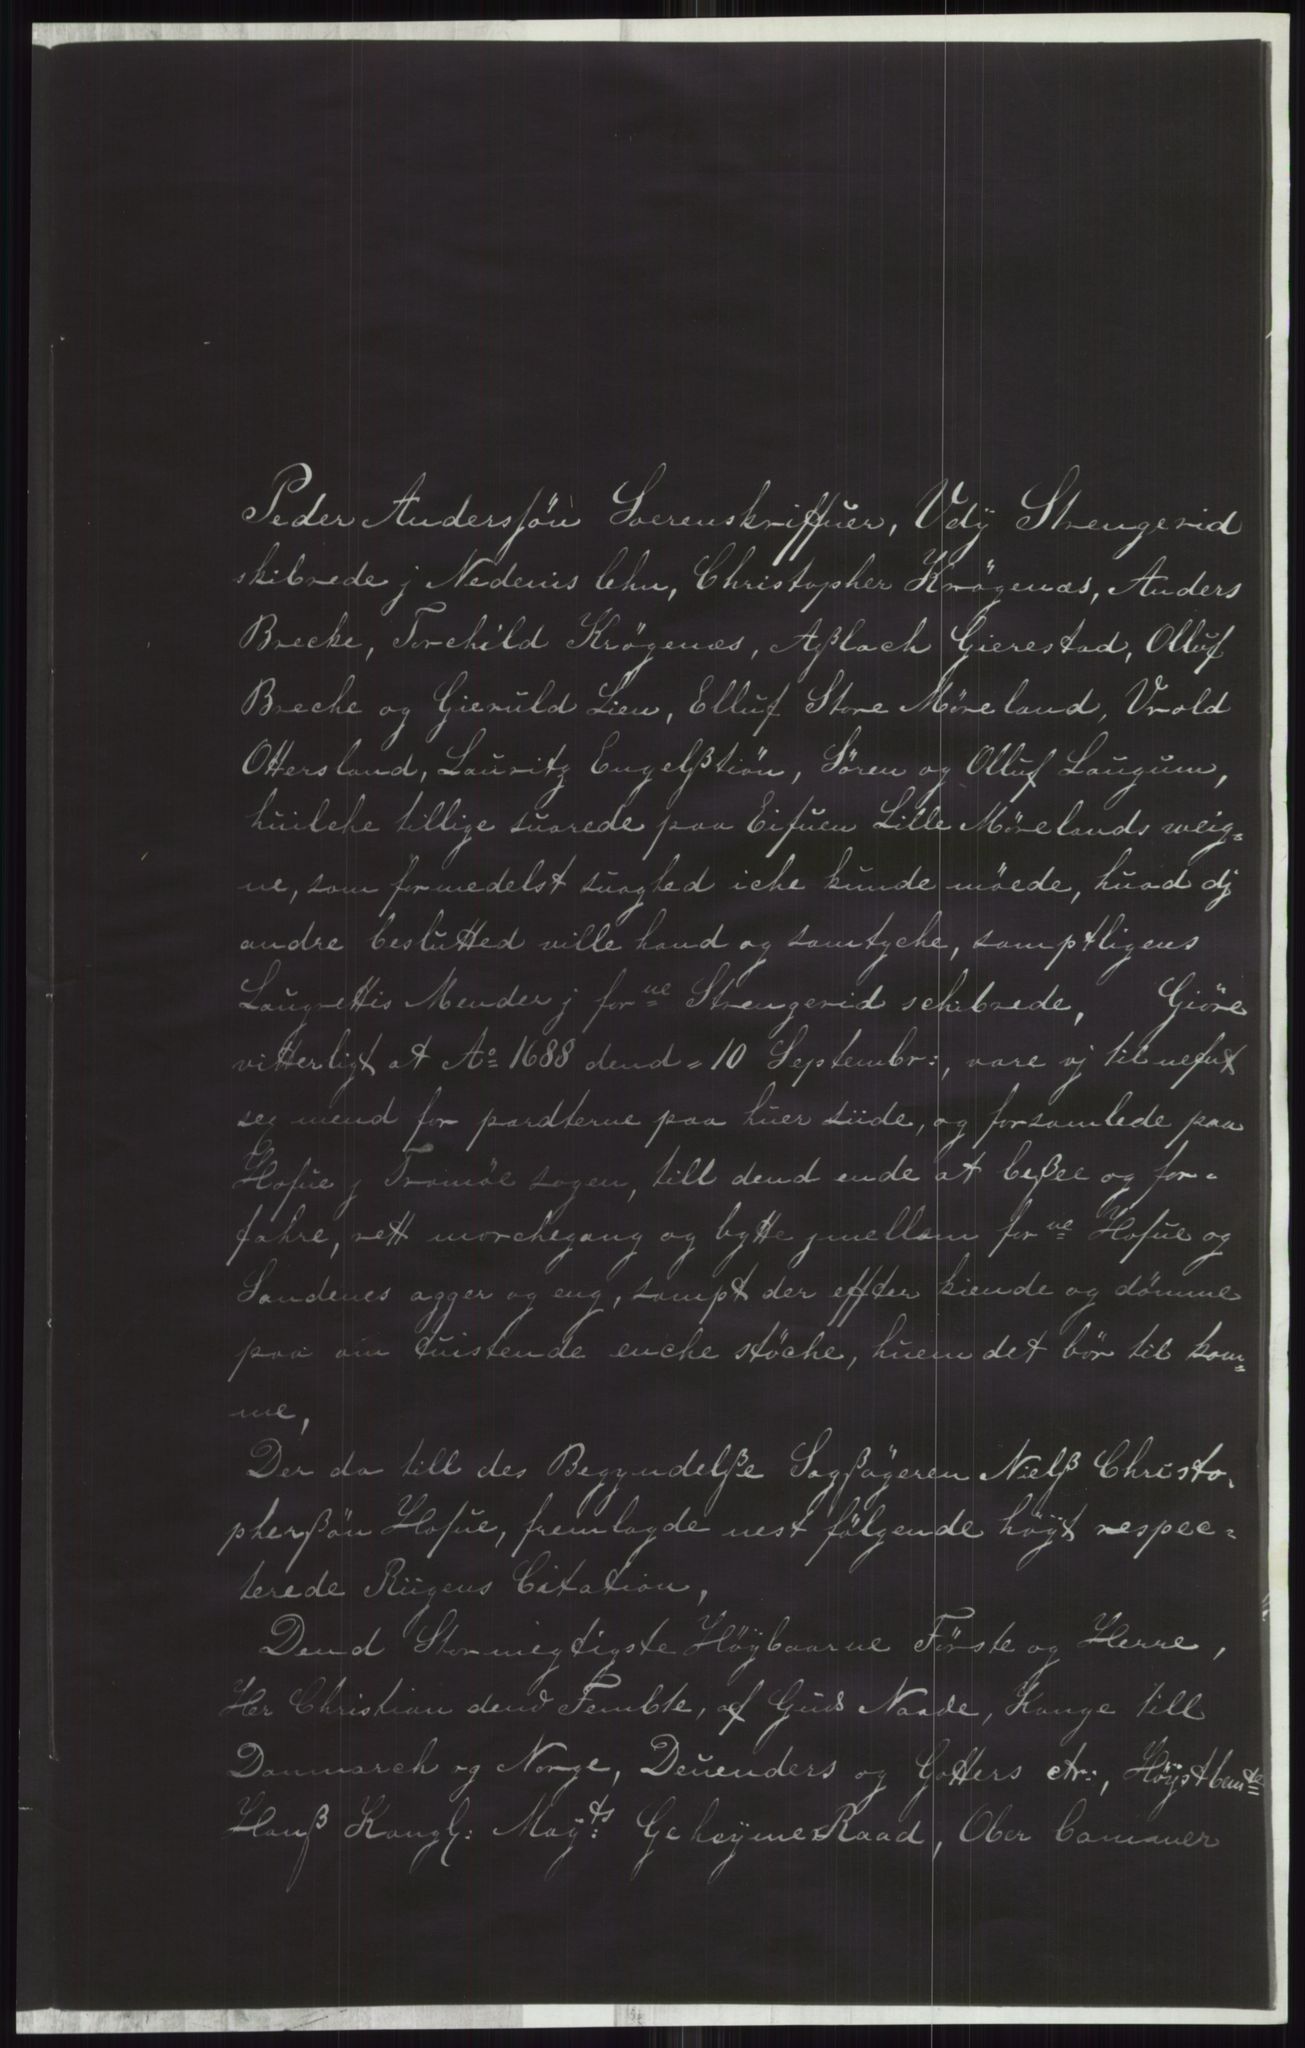 Peder Andersøn Soerenskriffuer, Vdÿ Strengerid
skibrede j Nedenis lehn, Christopher Krøgenæs, Anders
Brecke, Torchild Krøgenæs, Aßlach Gierestad, Olluf
Breche og Gieruld Lien, Elluf Store Møreland, Vrold
Ottersland, Lauritz Engelßtiön, Sören og Olluf Laugum,
huilche tillige suarede paa Eifuen Lille Mörelands weig=
ne, som formedelst suaghed iche kunde möede, huad dj
andre beslutted ville hand og samtyche, samptligens
Laugrettis Mender j forne Strengerid schibrede, Giöre
vitterligt at Ao 1688 dend = 10 Septembr:, vare vj til nefnt
sex mend for pardterne paa huer siide, og forsamlede paa
Hofue j Tromöe sogen, till dend ende at beßee og for=
fahre, rett morchegang og bytte jmellem forne Hofue og
Sandenes agger og eng, sampt der effter kiende og dömme
paa om tuistende enche stöche, huem det bör til kom=
me,
Der da till des Begyndelße Sagßögeren Nielß Christo=
pherßön Hofue, fremlagde nest fölgende höÿt respec=
terede Riigens Citation,
Dend Stormegtigste Höÿbaarne Förste og Herre,
Her Christian dend Fembte, af Guds Naade, Konge till
Danmarch og Norge, Deuenders og Gotters etr:, Höÿstbemte
Hanß Kongl: Maÿts: Geheÿme Raad, Ober Camamer